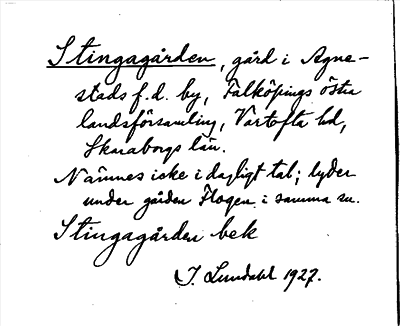 Stingagården, gård i Agne-
stads f.d. by, Falköpings östra
landsförsamling, Vartofta hd,
Skaraborgs län.
Nämnes icke i dagligt tal; lyder
under gården Flogen i samma sn.
Stingagården bek
I. Lundahl 1927.